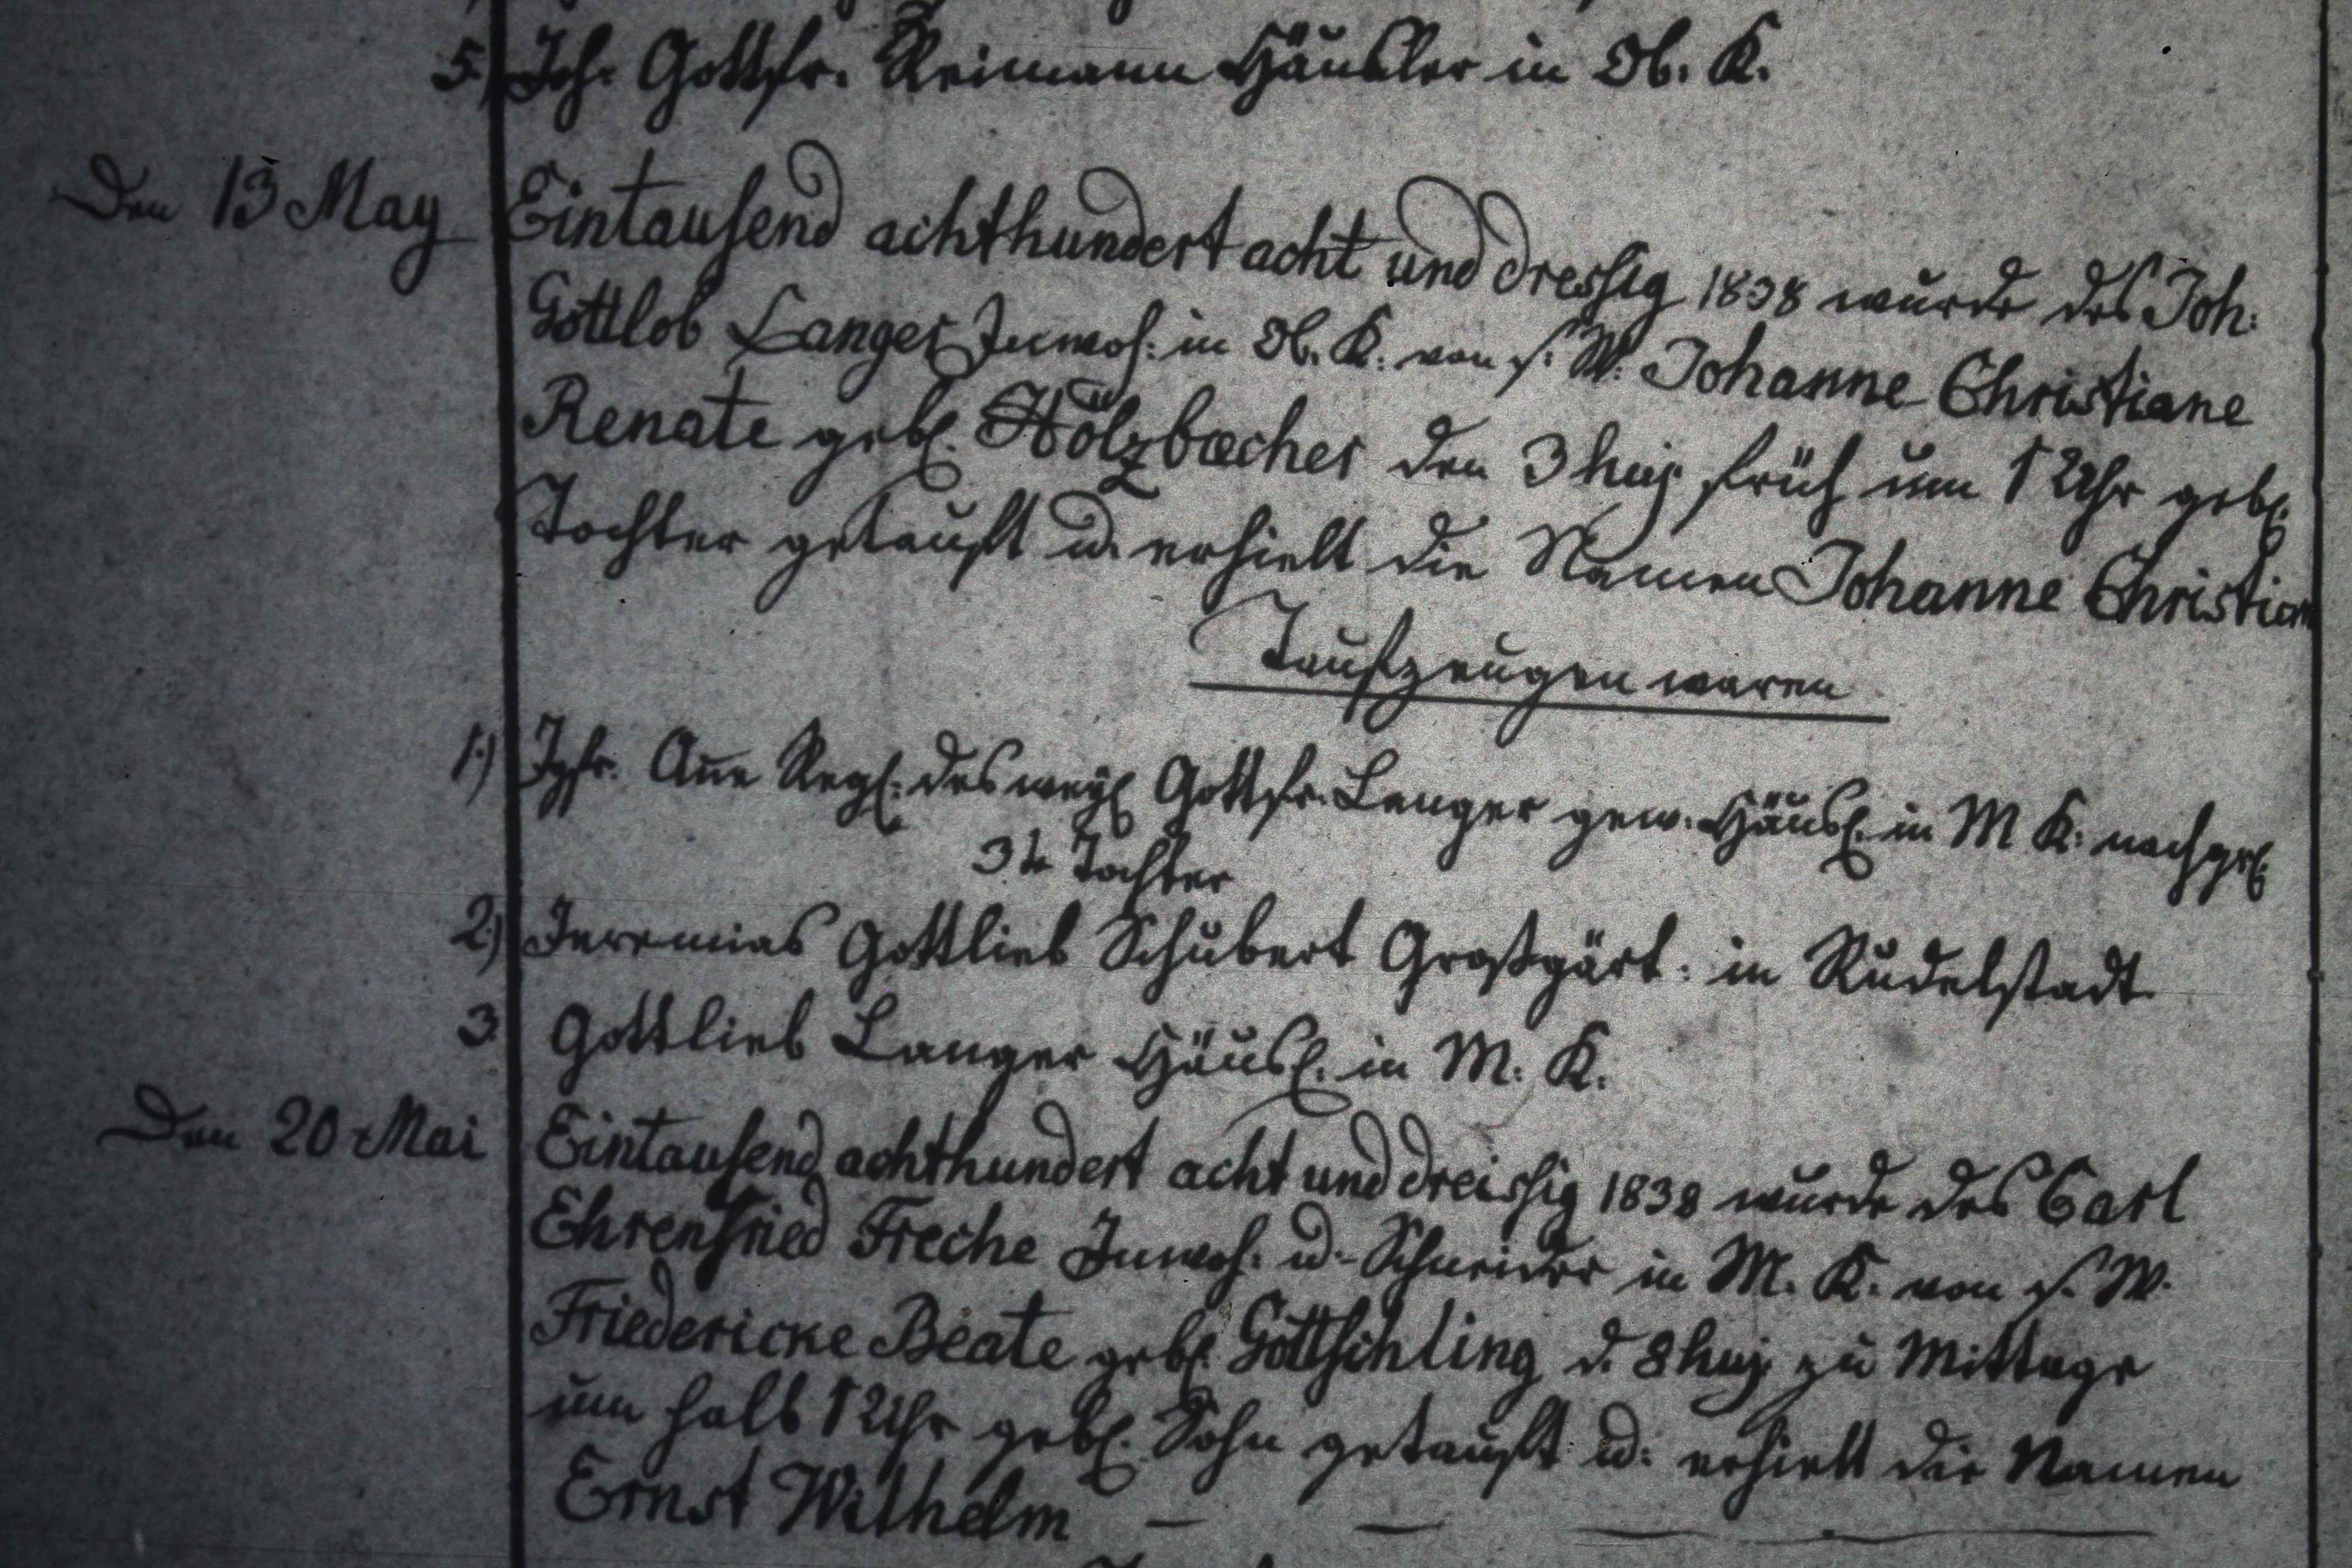 5.) Joh. Gottfr. Reimann Häusler in Ob. K.
Den 13 May Eintausend achthundert acht und dreissig 1838 wurde des Joh:
Gottlob Langer Inwoh: in Ob. K: von s. W: Johanne Christiane
Renate gebl. Hölzbecher den 3 huj. früh um 1 Uhr gebl.
Tochter getauft u. erhielt die Namen Johanne Christian
Taufzeugen waren
1.) Jgfr. Añe Regl: des weyl Gottfr. Langer gew. Häusl. in M K: nachgel.
3te Tochter
2.) Jeremias Gottlieb Schubert Großgärt: in Rudelstadt
3 Gottlieb Langer Häusl. in M: K.
Den 20 Mai Eintausend achthundert acht und dreissig 1838 wurde des Carl
Ehrenfried Freche Inwoh. u. Schneider in M. K. von s. W.
Friedericke Beate gebl. Göttschling d. 8 huj. zu Mittage
um halb 1 Uhr gebl. Sohn getauft u: erhielt die Namen
Ernst Wilhelm — — —